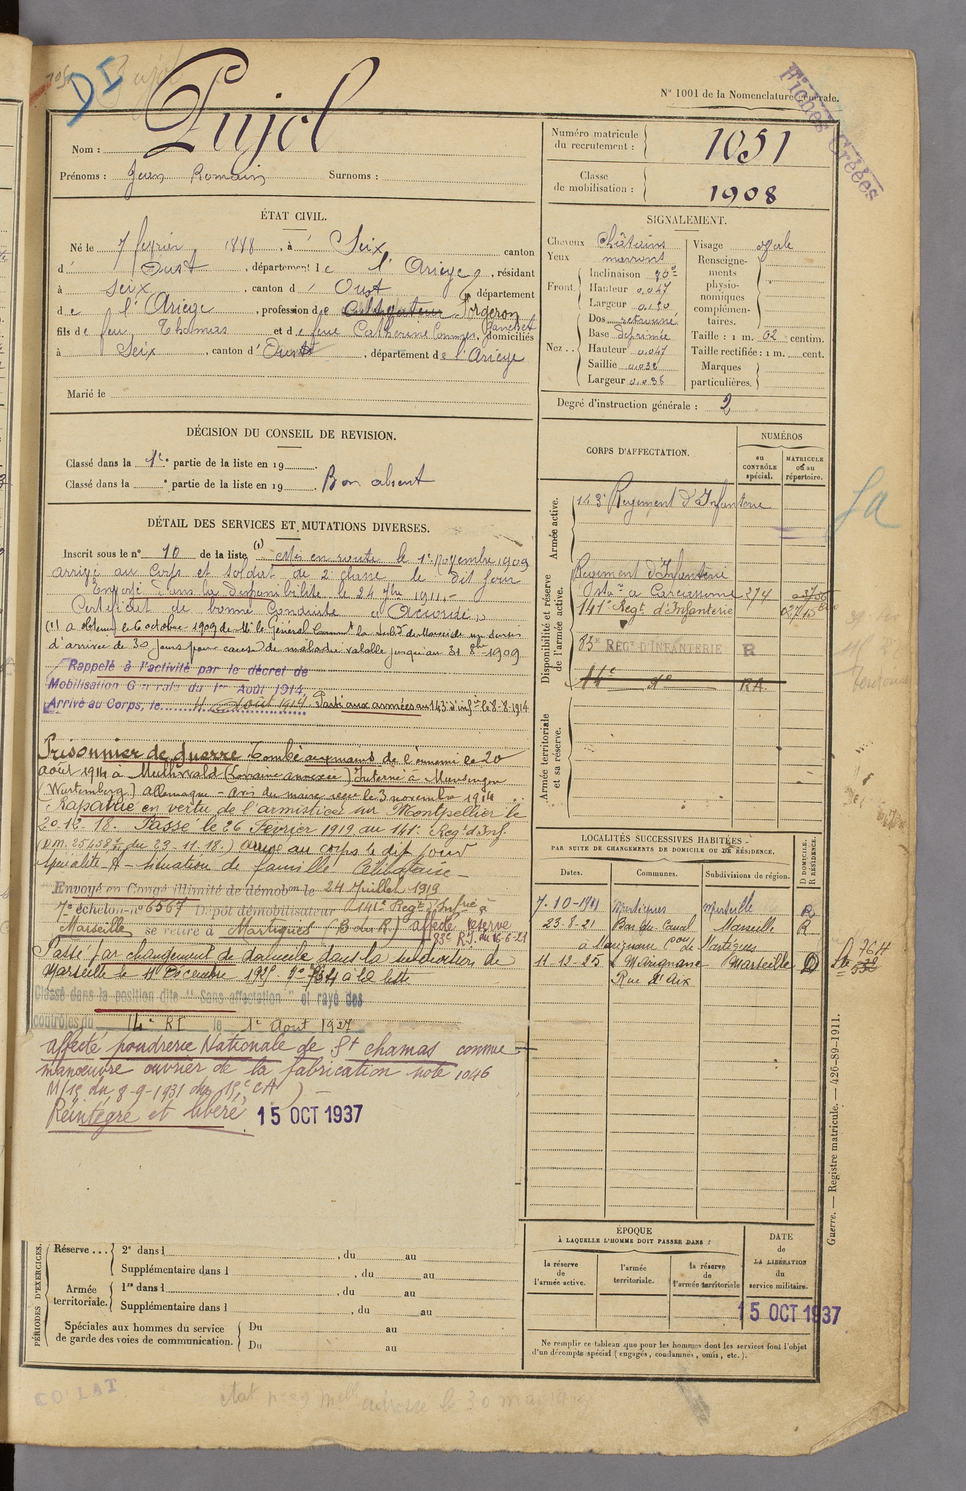 DI
Pujol
N° 1001 de la Nomenclature générale.
Fiches Créées
Nom : Pujol
Prénoms : Jean Romain Surnoms :
Numéro matricule du recrutement : 1051
Classe de mobilisation : 1908
ÉTAT CIVIL.
Né le 7 février 1888, à Seix canton
d' Oust, département de l'Ariège, résidant
à Seix, canton d' Oust, département
de l'Ariège, profession de Cultivateur Forgeron
fils de feu Thomas et de feue Catherine domiciliés
à Seix, canton d'Oust, département de l'Ariège
Marié le
SIGNALEMENT.
Cheveux Châtains
Yeux marrons
Front. Inclinaison
Hauteur 0.047
Largeur
Nez .. Dos
Base Déprimée
Hauteur 0.047
Saillie
Largeur 0.036
Visage ovale
Renseignements physionomiques complémentaires.
Taille : 1 m. 62 centim.
Taille rectifiée : 1 m. cent.
Marques particulières.
Degré d'instruction générale : 2
DÉCISION DU CONSEIL DE REVISION.
Classé dans la 1re partie de la liste en 19
Classé dans la e partie de la liste en 19 Bon absent
DÉTAIL DES SERVICES ET MUTATIONS DIVERSES.
Inscrit sous le n° 10 de la liste (1) Mis en route le 1er Novembre 1909
arrivé au Corps et soldat de 2e classe le dit jour
Envoyé dans la disponibilité le 24 7bre 1911.-
Certificat de bonne Conduite "Accordé"
(1) a obtenu le 6 octobre 1909 de Mr le Général Commt la Subd. de Marseille un sursis
d'arrivée de 30 jours pour cause de maladie valable jusqu'au 31 8bre 1909
Rappelé à l'activité par le décret de
Mobilisation Générale du 1er Août 1914,
Arrivé au Corps, le 4 août 1914. Parti aux armées au 143e d'inf. le 8-8-1914
Prisonnier de guerre Tombé aux mains de l'ennemi le 20
août 1914 à Muthvald (Lorraine annexée) Interné à Munsingen
(Wurtemberg) allemagne - avis du maire reçu le 3 novembre 1914.
Rapatrié en vertu de l'armistice sur Montpellier le
20-12-18. Passé le 26 Février 1919 au 141e Régt d'Inf.
du 23-11-18.) arrivé au corps le dit jour
Spécialité A - situation de famille Célibataire -
Envoyé en Congé illimité de démobon le 24 Juillet 1919
7e échelon n° 6567 Dépôt démobilisateur 141e Régt d'Infrie à
Marseille se retire à Martigues (B. du R.) affecté réserve
83e R.I. du 16-6-21
Passé par changement de domicile dans la subdivision de
Marseille le 11 Décembre 1925 n° 764 à la liste
Classé dans la position dite "Sans affectation" et rayé des
contrôles du 14e RI le 1er Août 1927
affecté poudrerie Nationale de St chamas comme
manœuvre ouvrier de la fabrication note 1046
M/15 du 8-9-1931 du 15e CA)
Réintégré et libéré. 15 OCT 1937
CORPS D'AFFECTATION.
NUMÉROS
au CONTRÔLE spécial.
MATRICULE ou au répertoire.
Armée active.
143e Régiment d'Infanterie
Disponibilité et réserve de l'armée active.
Régiment d'Infanterie
à Carcassonne 274
141e Régt d'Infanterie
83e REGT D'INFANTERIE R
14e do RA.
Armée territoriale et sa réserve.
LOCALITÉS SUCCESSIVES HABITÉES
PAR SUITE DE CHANGEMENTS DE DOMICILE OU DE RÉSIDENCE.
Dates. Communes. Subdivisions de région. D DOMICILE. R RÉSIDENCE.
7-10-1911 Martigues Marseille R
23-8-21 Bar du Canal Marseille R
à Marignane con de Martigues
11-12-25 Marignane Marseille D
Rue d'Aix
764
Guerre. — Registre matricule. — 426-89-1911.
PÉRIODES D'EXERCICES.
Réserve ... 2e dans l , du au
Supplémentaire dans l , du au
Armée territoriale. 1re dans l , du au
Supplémentaire dans l , du au
Spéciales aux hommes du service de garde des voies de communication. Du au
Du au
ÉPOQUE
À LAQUELLE L'HOMME DOIT PASSER DANS :
la réserve de l'armée active.
l'armée territoriale.
la réserve de l'armée territoriale
DATE de LA LIBÉRATION du service militaire.
15 OCT 1937
Ne remplir ce tableau que pour les hommes dont les services font l'objet
d'un décompte spécial (engagés, condamnés, omis, etc.).